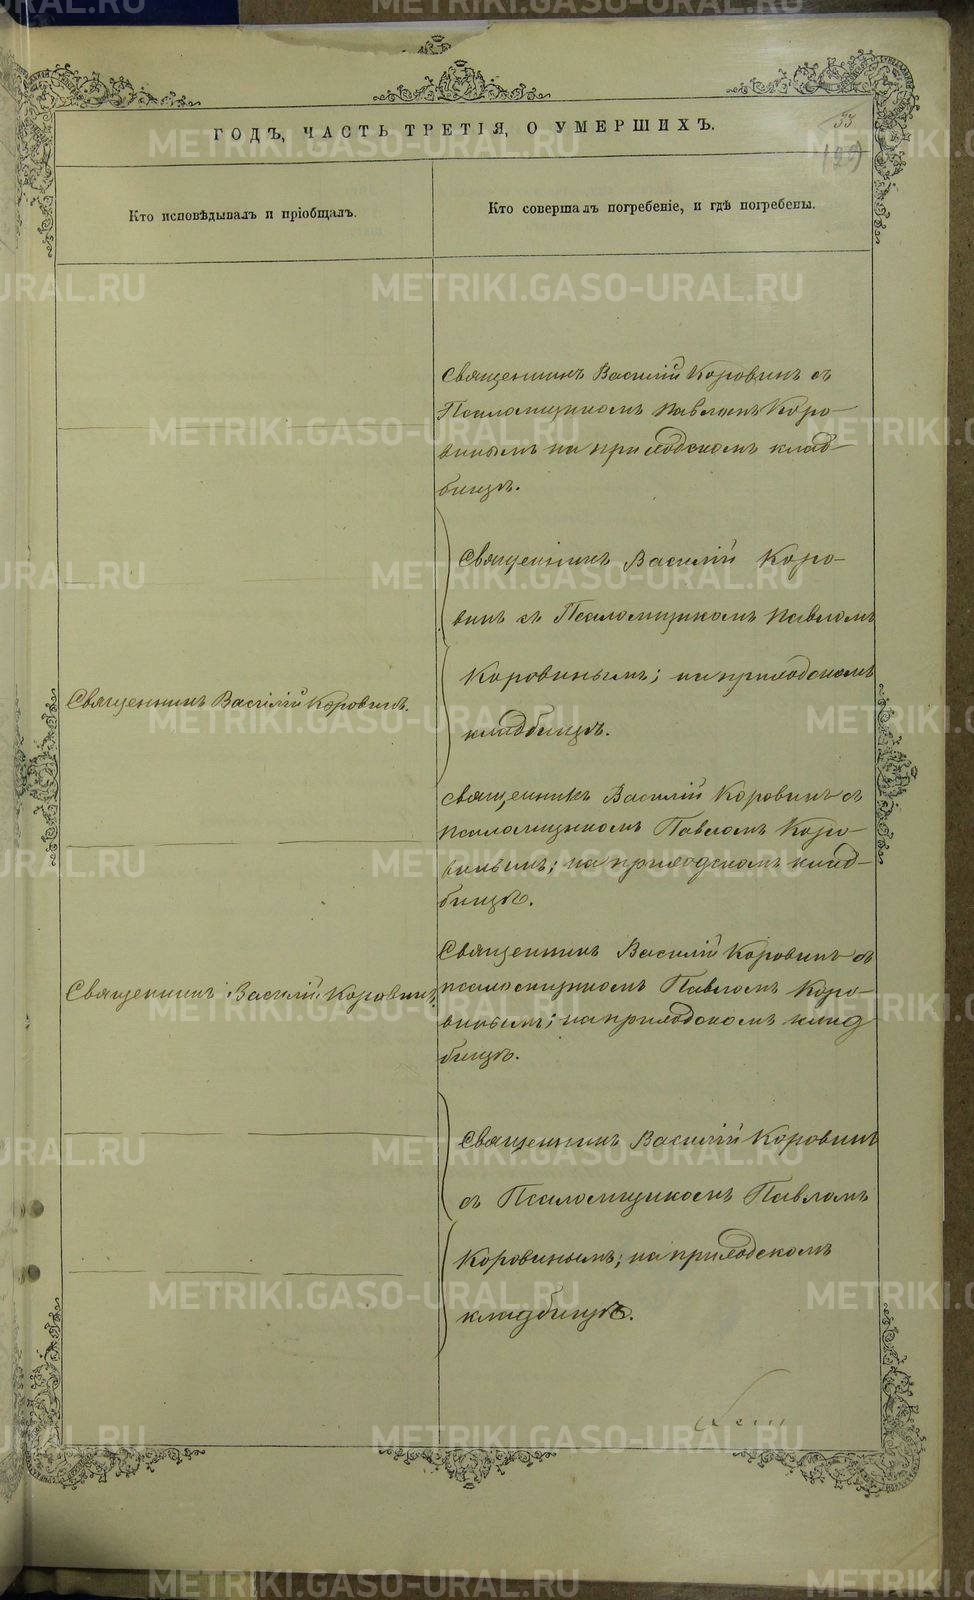 ГОДЪ, ЧАСТЬ ТРЕТІЯ, О УМЕРШИХЪ.
33
Кто исповѣдывалъ и пріобщалъ.
Кто совершалъ погребеніе, и гдѣ погребены.
Священникъ Василій Коровинъ съ
Псаломщикомъ Павломъ Коро-
винымъ на приходскомъ клад-
бищѣ.
Священникъ Василій Коро-
винъ съ Псаломщикомъ Павломъ
Коровинымъ; на приходскомъ
кладбищѣ.
Священникъ Василій Коровинъ.
Священникъ Василій Коровинъ съ
псаломщикомъ Павломъ Коро-
винымъ; на приходскомъ клад-
бищѣ.
Священникъ Василій Коровинъ
Священникъ Василій Коровинъ съ
псаломщикомъ Павломъ Коро-
винымъ; на приходскомъ клад
бищѣ.
Священникъ Василій Коровинъ
съ Псаломщикомъ Павломъ
Коровинымъ; на приходскомъ
кладбищѣ.
METRIKI.GASO-URAL.RU